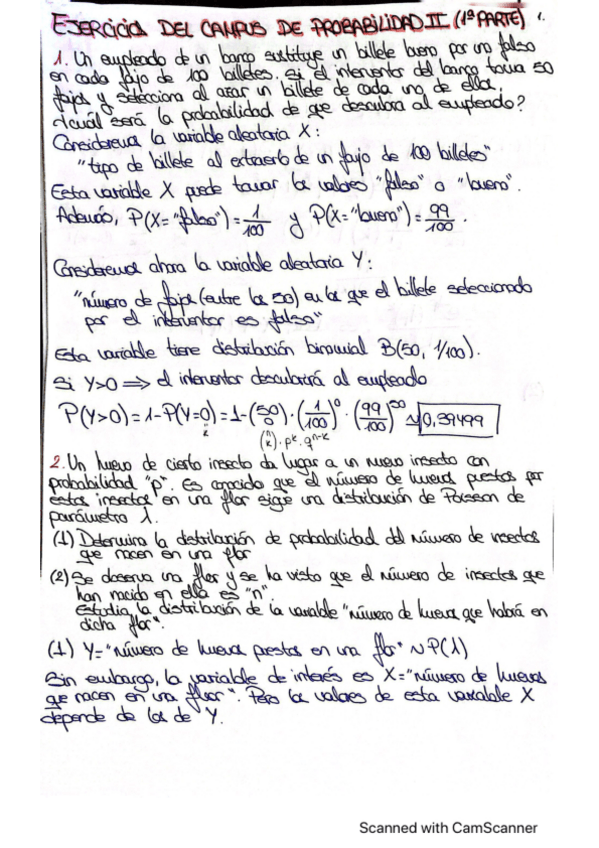 EJERCICIOS DEL CAMPUS DE PROBABILIDAD II (1ª PARTE) 1.
1. Un empleado de un banco sustituye un billete bueno por uno falso
en cada fajo de 100 billetes. Si el interventor del banco toma 50
fajos y selecciona al azar un billete de cada uno de ellos,
¿cuál será la probabilidad de que descubra al empleado?
Consideremos la variable aleatoria X:
"tipo de billete al extraerlo de un fajo de 100 billetes"
Esta variable X puede tomar los valores "falso" o "bueno".
Además, P(X="falso")=1/100 y P(X="bueno")=99/100.
Consideremos ahora la variable aleatoria Y:
"número de fajos (entre los 50) en los que el billete seleccionado
por el interventor es falso"
Esta variable tiene distribución binomial B(50, 1/100).
Si Y>0 ⟹ el interventor descubrirá al empleado
P(Y>0)=1-P(Y=0)=1-(50 0)·(1/100)^0·(99/100)^50 ≈ 0,39499
k (n k)·p^k·q^n-k
2. Un huevo de cierto insecto da lugar a un nuevo insecto con
probabilidad "p". Es conocido que el número de huevos puestos por
estos insectos en una flor sigue una distribución de Poisson de
parámetro λ.
(1) Determina la distribución de probabilidad del número de insectos
que nacen en una flor
(2) Se observa una flor y se ha visto que el número de insectos que
han nacido en ella es "n".
Estudia la distribución de la variable "número de huevos que habrá en
dicha flor".
(1) Y="número de huevos puestos en una flor" ~ P(λ)
Sin embargo, la variable de interés es X="número de huevos
que nacen en una flor". Pero los valores de esta variable X
depende de los de Y.
Scanned with CamScanner